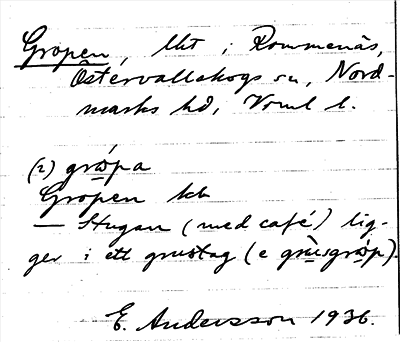 Gropen, lht i Rommenäs,
Östervallskogs sn, Nord-
marks hd, Vrml l.
(2) grópa
Gropen kb
— Stugan (med café) lig-
ger i ett grustag (e grùsgróp).
E. Andersson 1936.